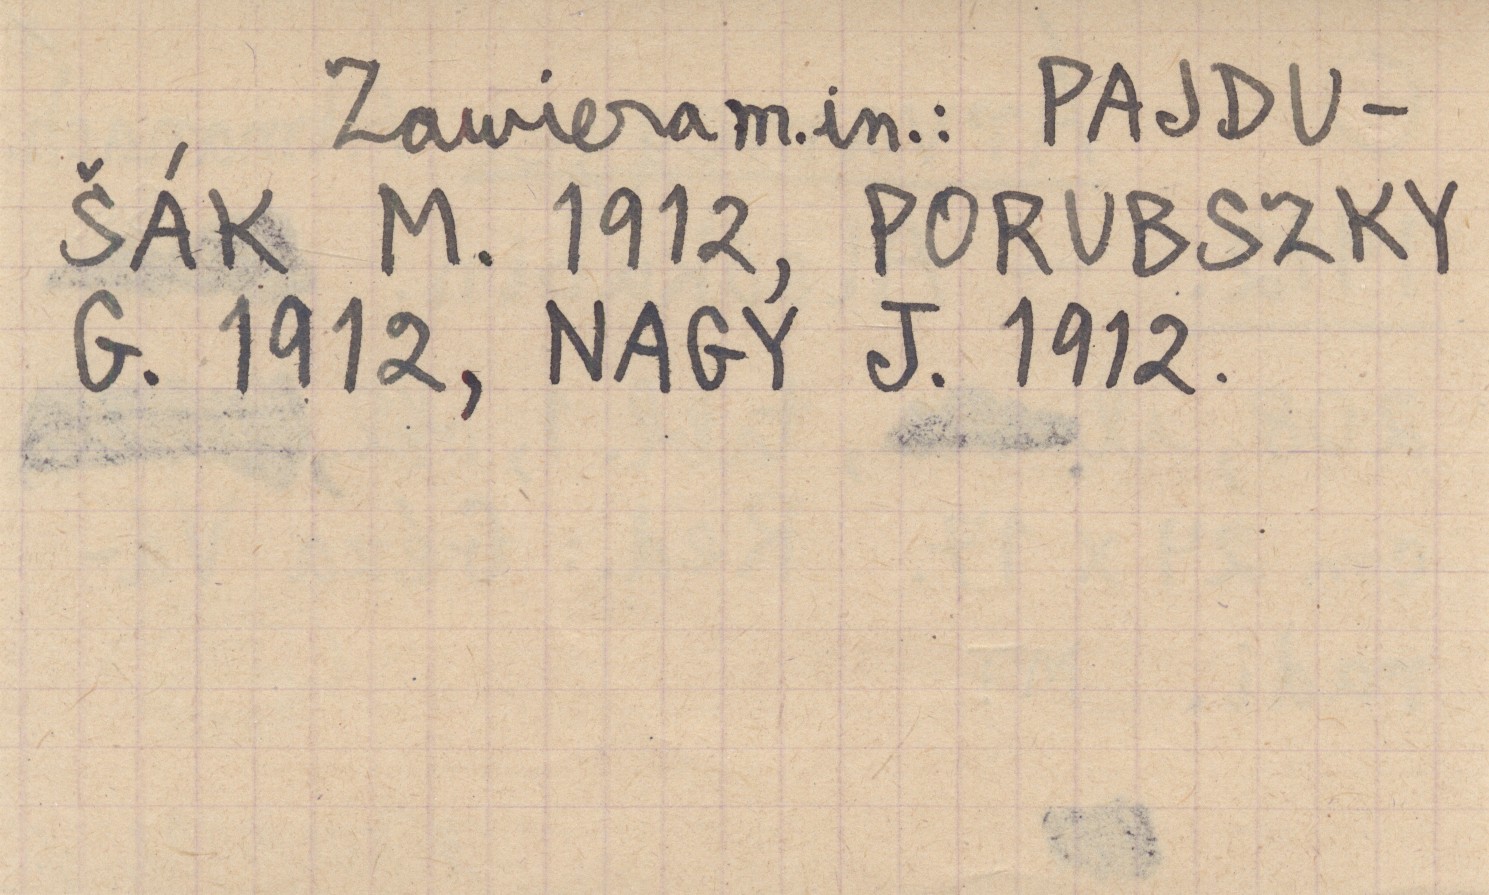 Zawiera m.in.: PAJDU-
ŠÁK M. 1912, PORUBSZKY
G. 1912, NAGY J. 1912.